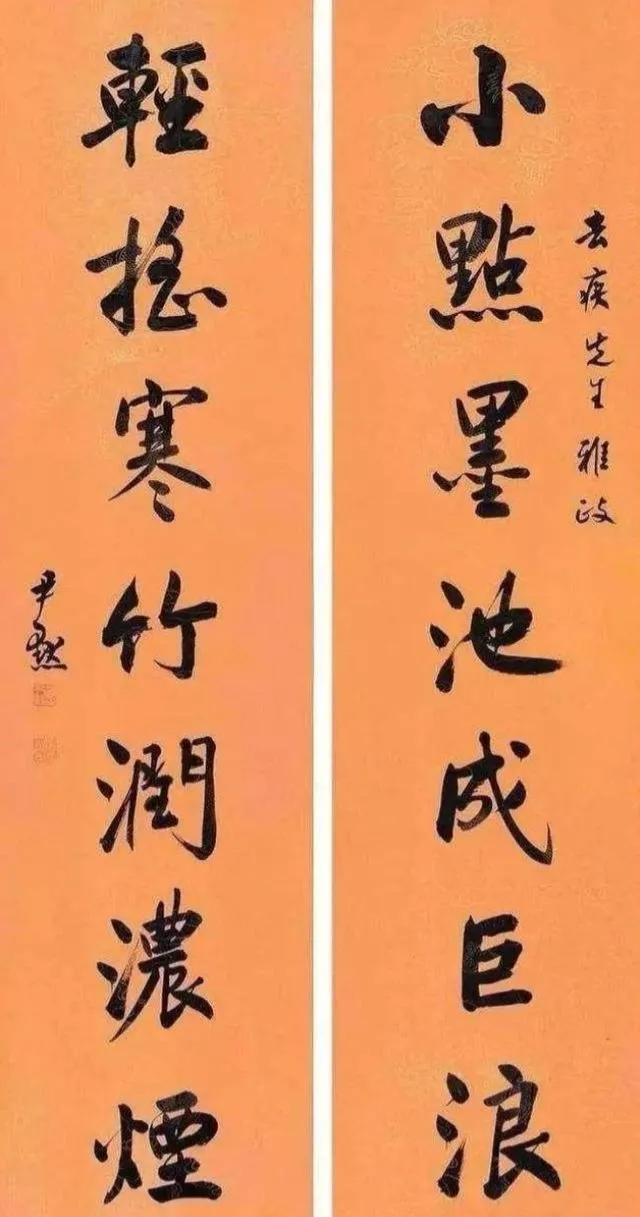 小點墨池成巨浪
去疾先生雅政
輕搖寒竹潤濃煙
尹默